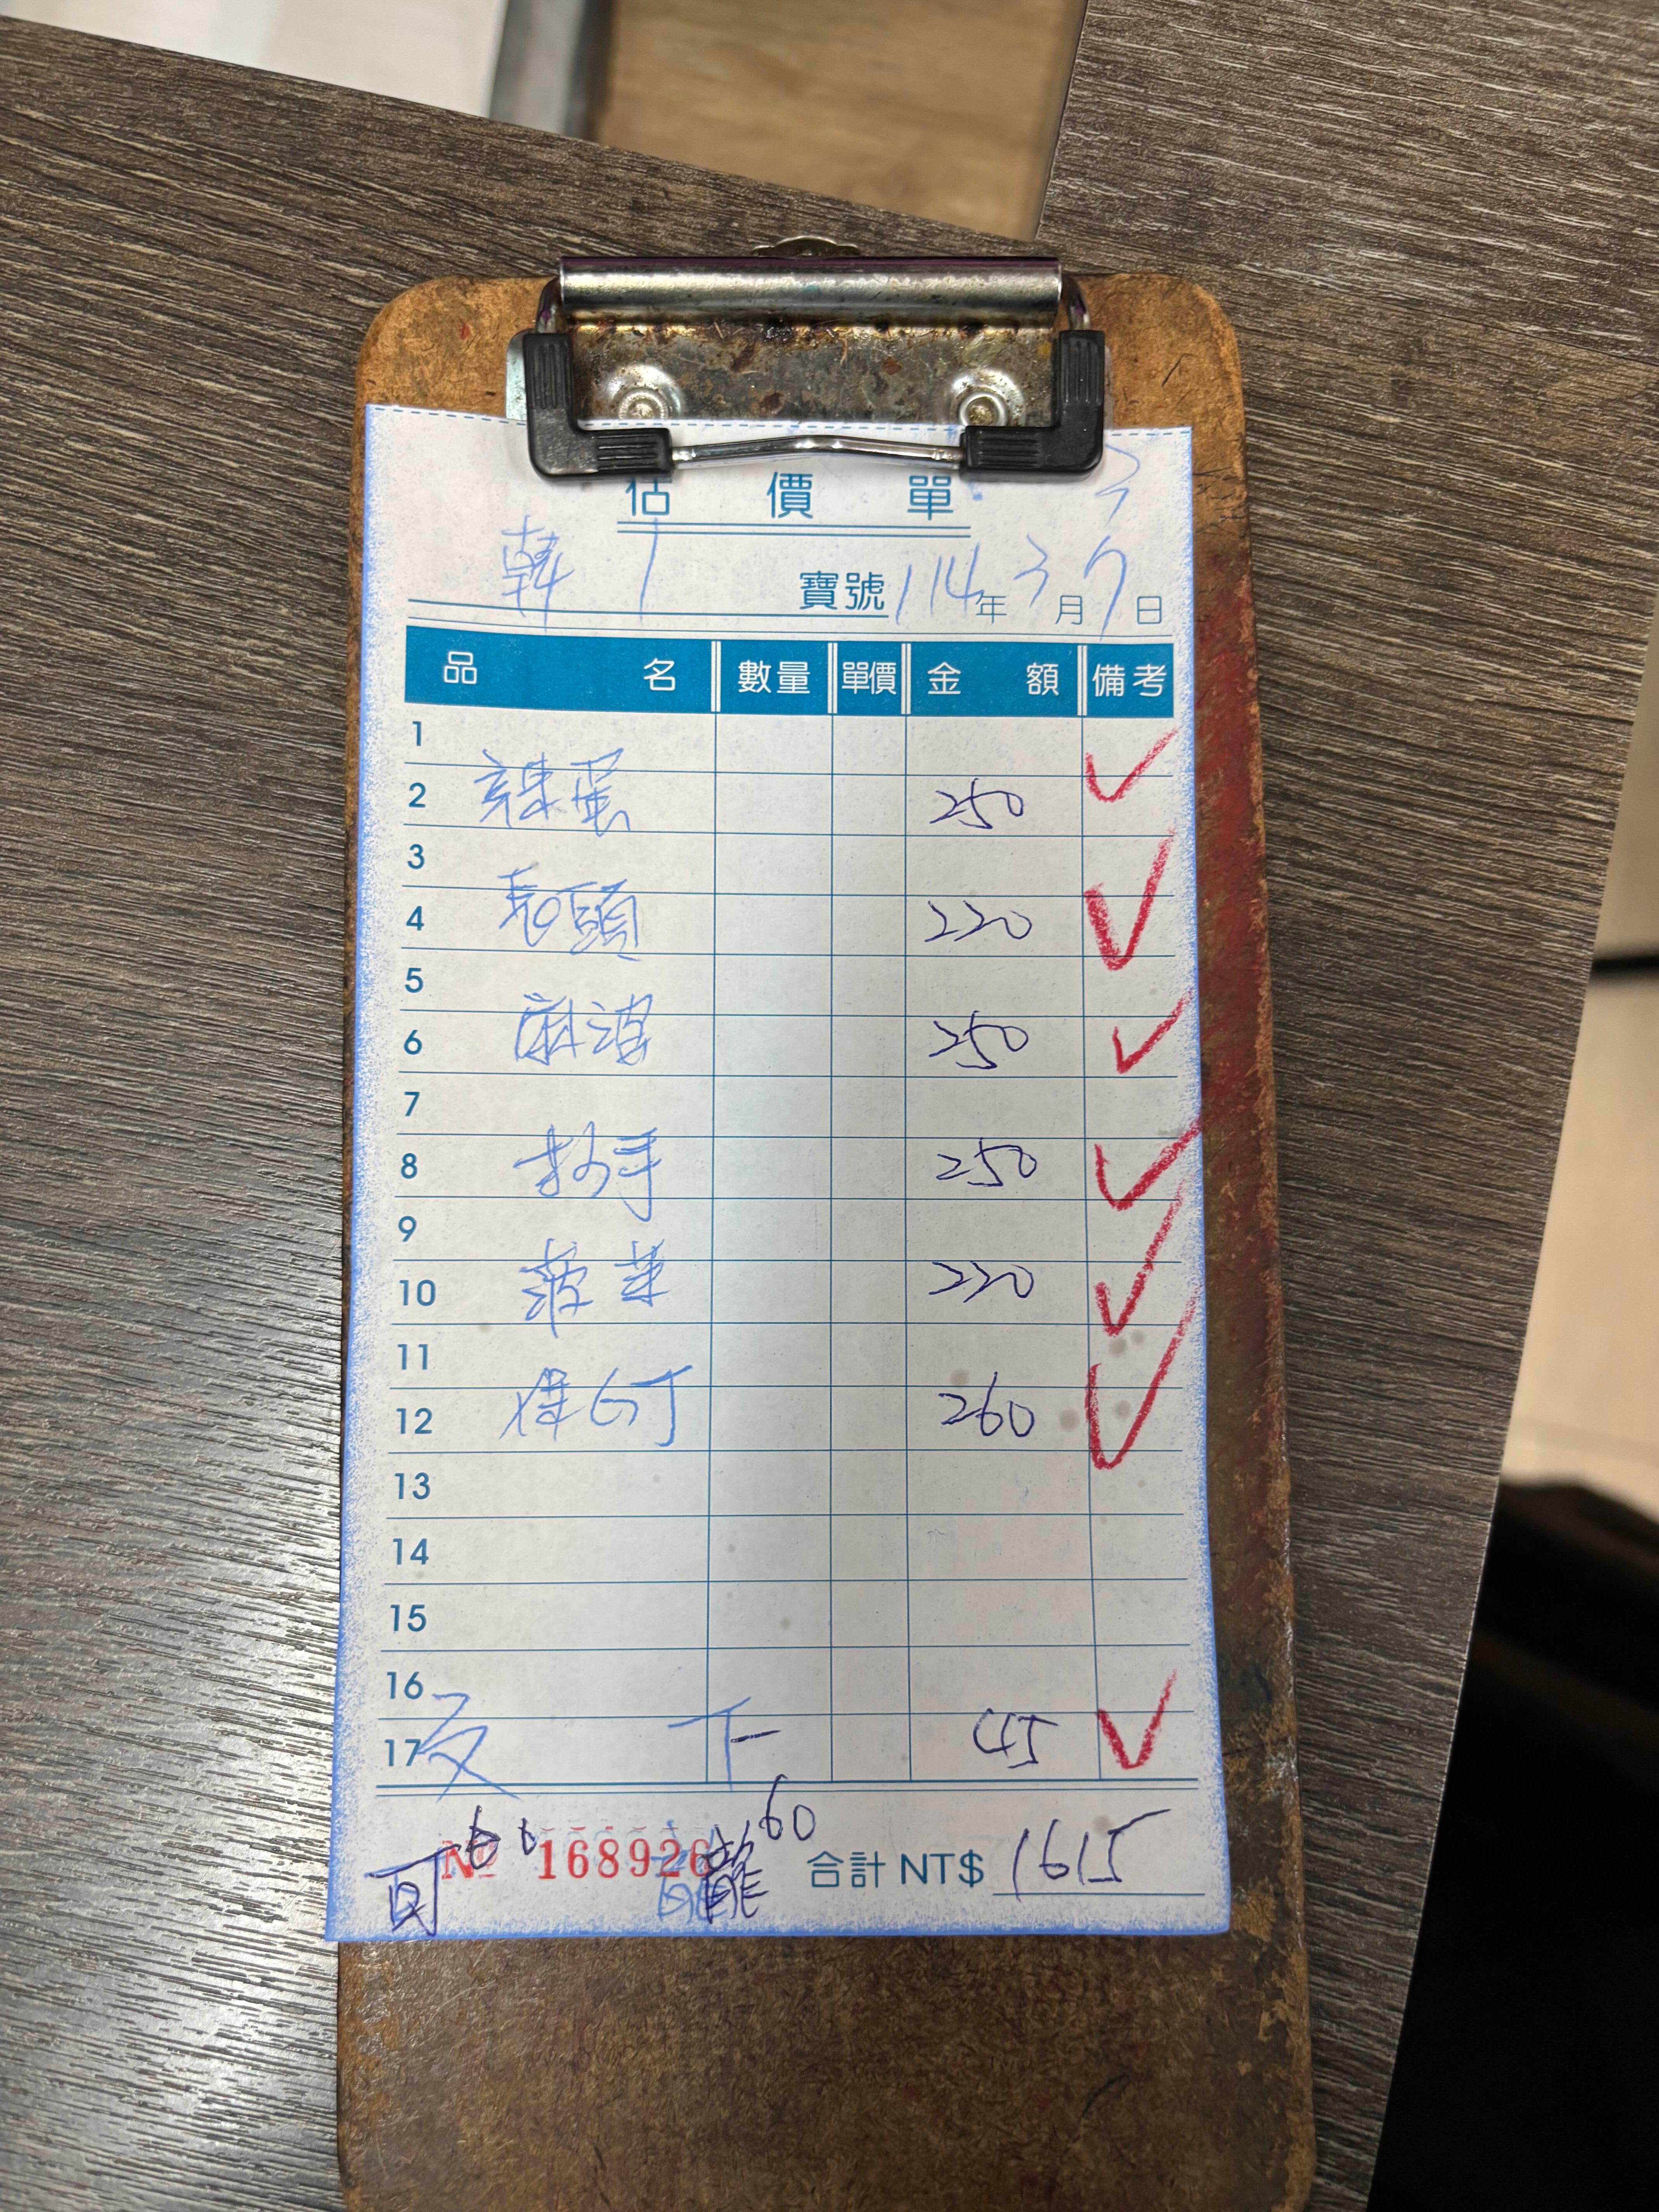 估價單 3
韓 寶號 114年3月7日
品名 數量 單價 金額 備考
1
2 蛋 250
3
4 頭 220
5
6 麻婆 250
7
8 抄手 250
9
10 菠菜 220
11
12 260
13
14
15
16
17 45
可 60 № 168926 龍 60 合計 NT$ 1615